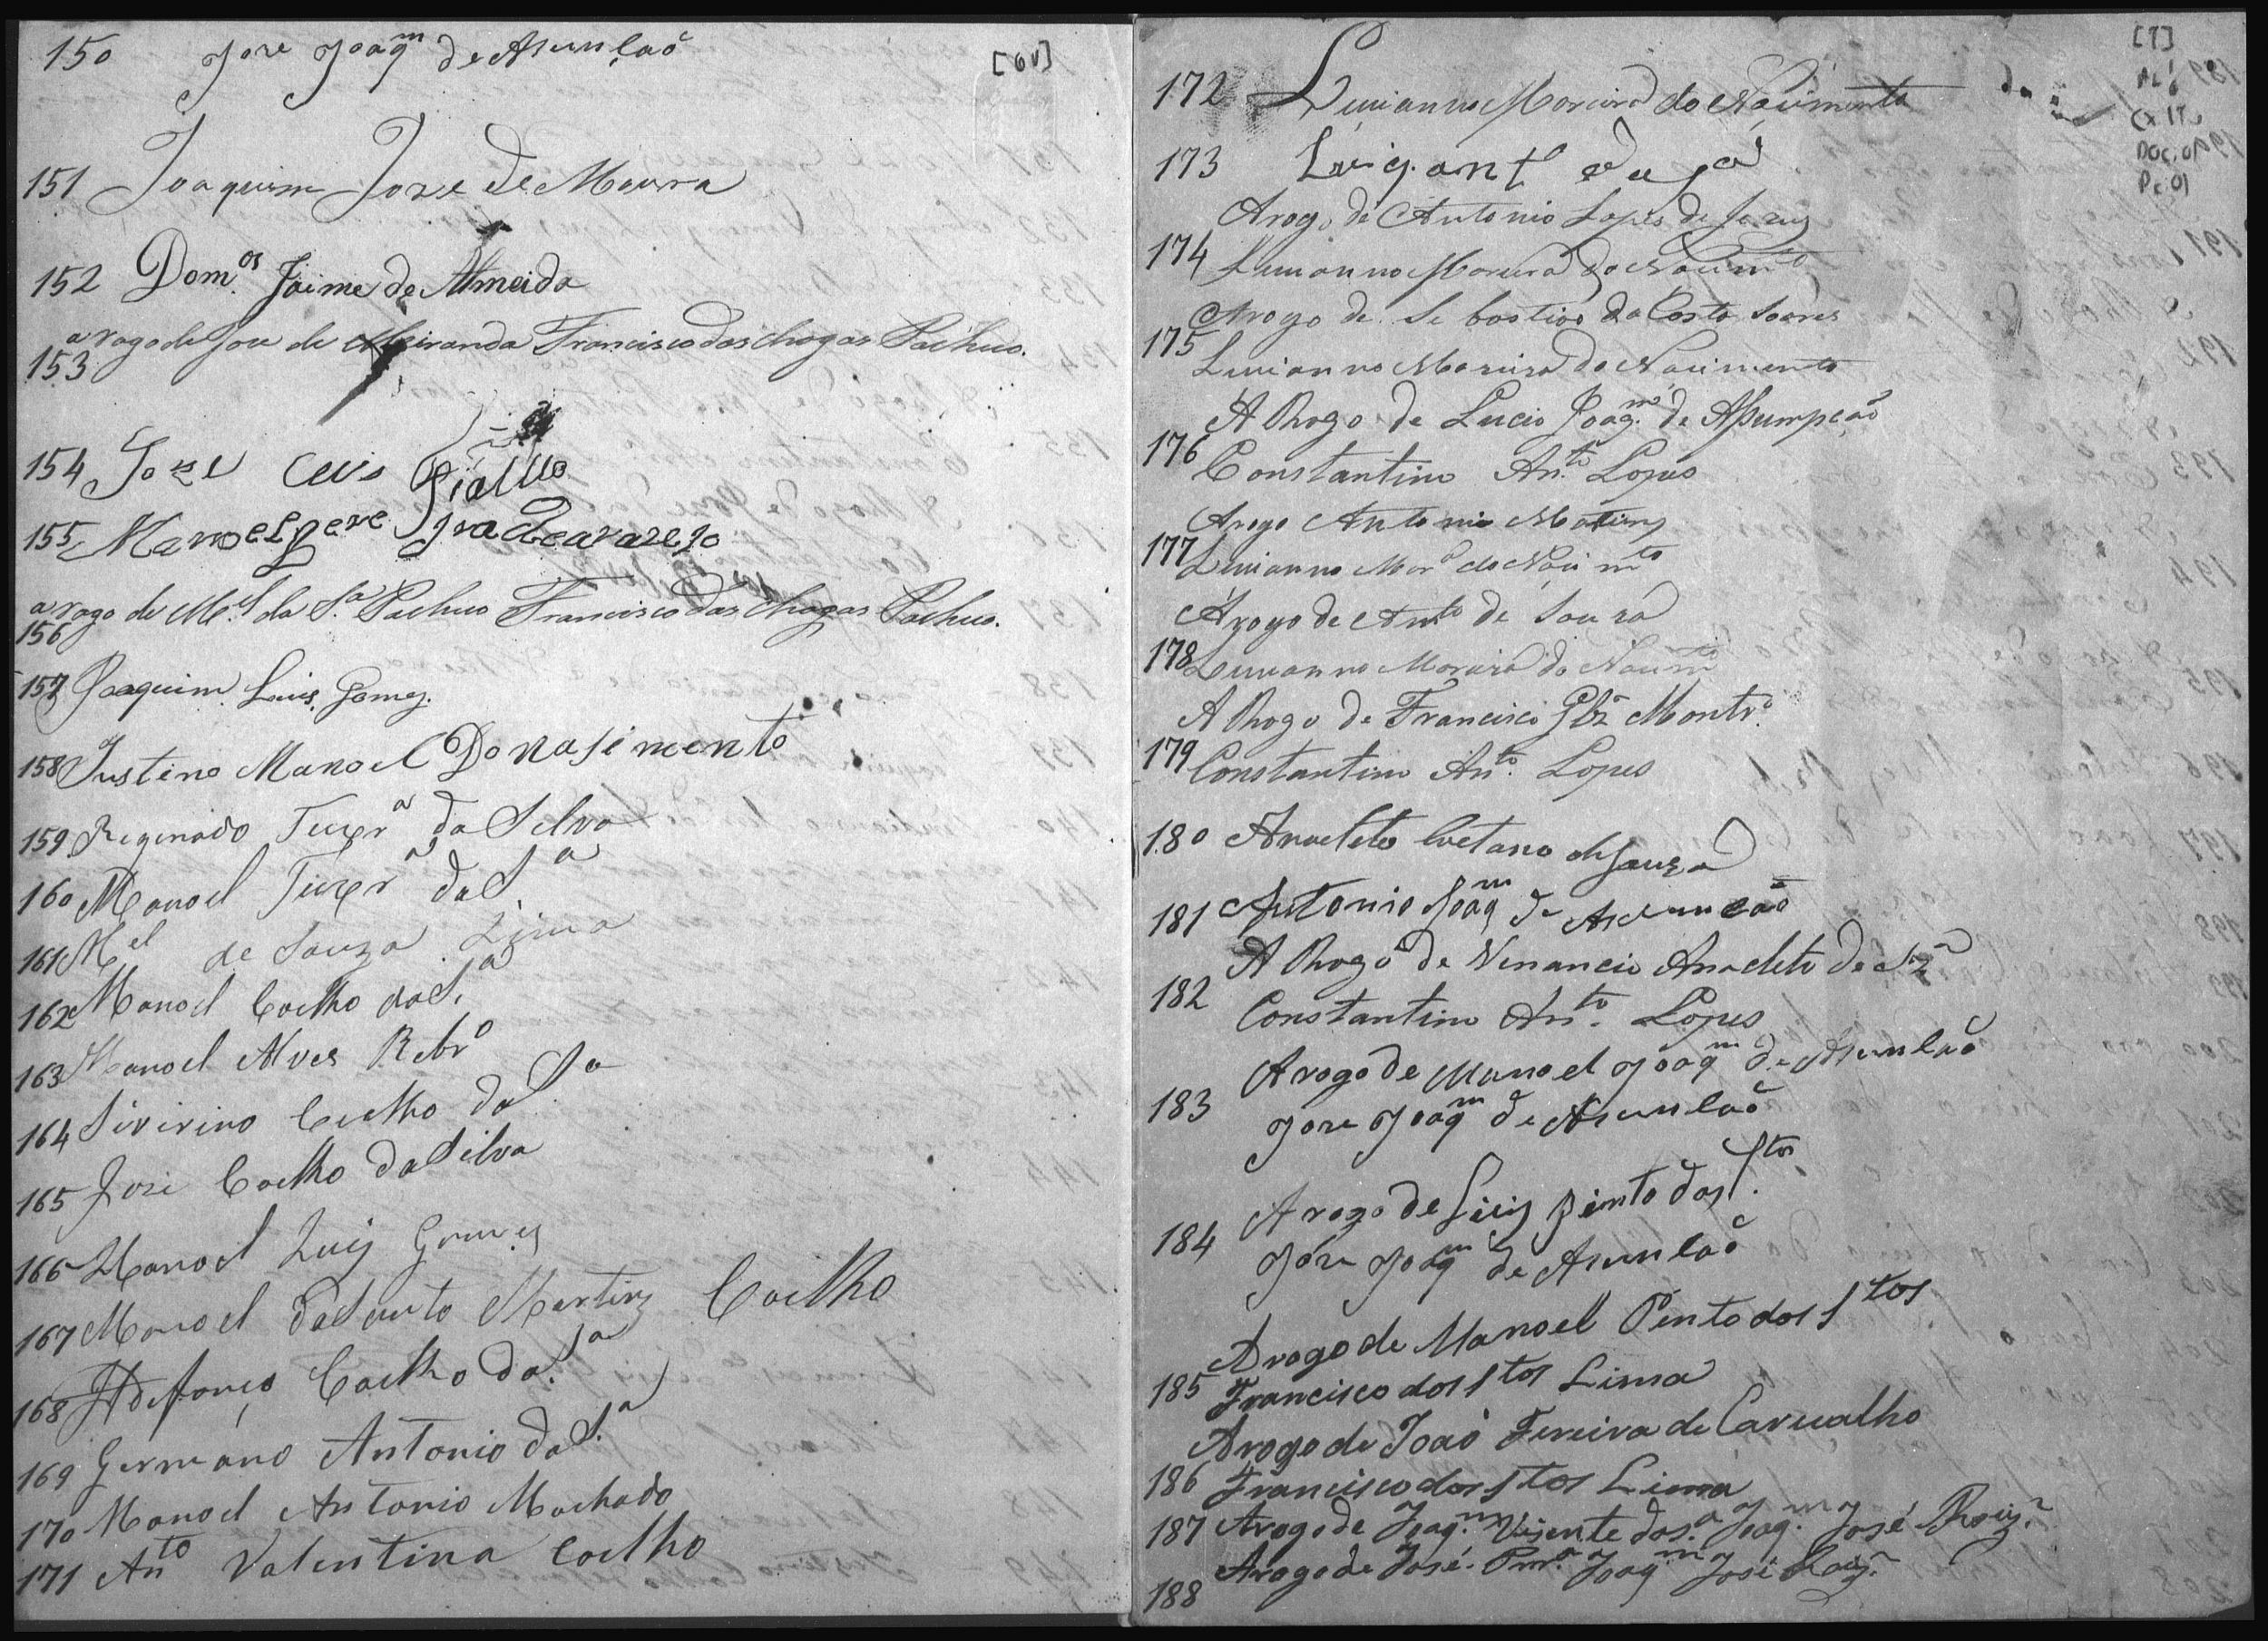 [6v]
150 Joze Joaqm de Asumlaõ
151 Joaquim Joze de Moura
152 Dom.os Jaime de Almeida
a rogo de Joze de Miranda Francisco das Chagas Pacheco.
153
154 Joze Luis
155 Manoel
a rogo de M.el da S.a Pacheco Francisco das Chagas Pacheco.
156
157 Joaquim Luis Gomez.
158 Justino Manoel Do nasimento
159 Reginado Teixera da Silva
160 Manoel Teixera da Sa
161 Mel de Souza Lima
162 Manoel Coelho da S.a
163 Manoel Alves Rebro
164 Sivirino Coelho da Sa
165 Jozé Coelho da Silva
166 Manoel Luiz Gomes
167 Manoel do Santo Martinz Coelho
168 Ildefonço Coelho da S.a
169 Germano Antonio da S.a
170 Manoel Antonio Machado
171 Anto Valentina Coelho
[7]
172 Luciannno Moreira do Nacimento
173
Arogo de Antonio Lopes de Jezuz
174 Lucianno Moreira do Nacimto
Arogo de Sebastião da Costa Soares
175 Lucianno Moreira do Nacimento
A Rogo de Lucio Joaq.m de Assumpção
176 Constantino An.to Lopes
Arogo Antonio Matinz
177 Lucianno Mora do Nacimto
Arogo de Anto de Souza
178 Lucianno Moreira do Nacimto
A Rogo de Francisco Glz Montro
179 Constantino An.to Lopes
180 Anacleto Caetano de Souza
181 Antonio Joaqm de Asumcaõ
A Rogo de Venancio Anacleto de Sz.a
182 Constantino An.to Lopes
A rogo de Manoel Joaqm de Asumlaõ
183 Joze Joaqm de Asumlaõ
A rogo de Luiz Pinto dos Stos
184 Joze Joaqm de Asumlaõ
Arogo de Manoel Pinto dos Stos
185 Francisco dos Stos Lima
Arogo de Joaõ Fereira de Carvalho
186 Francisco dos Stos Lima
187 Arogo de Joaq.m Visente da S.a Joaq.m José Roiz
Arogo de José Joaqm José Roiz
188